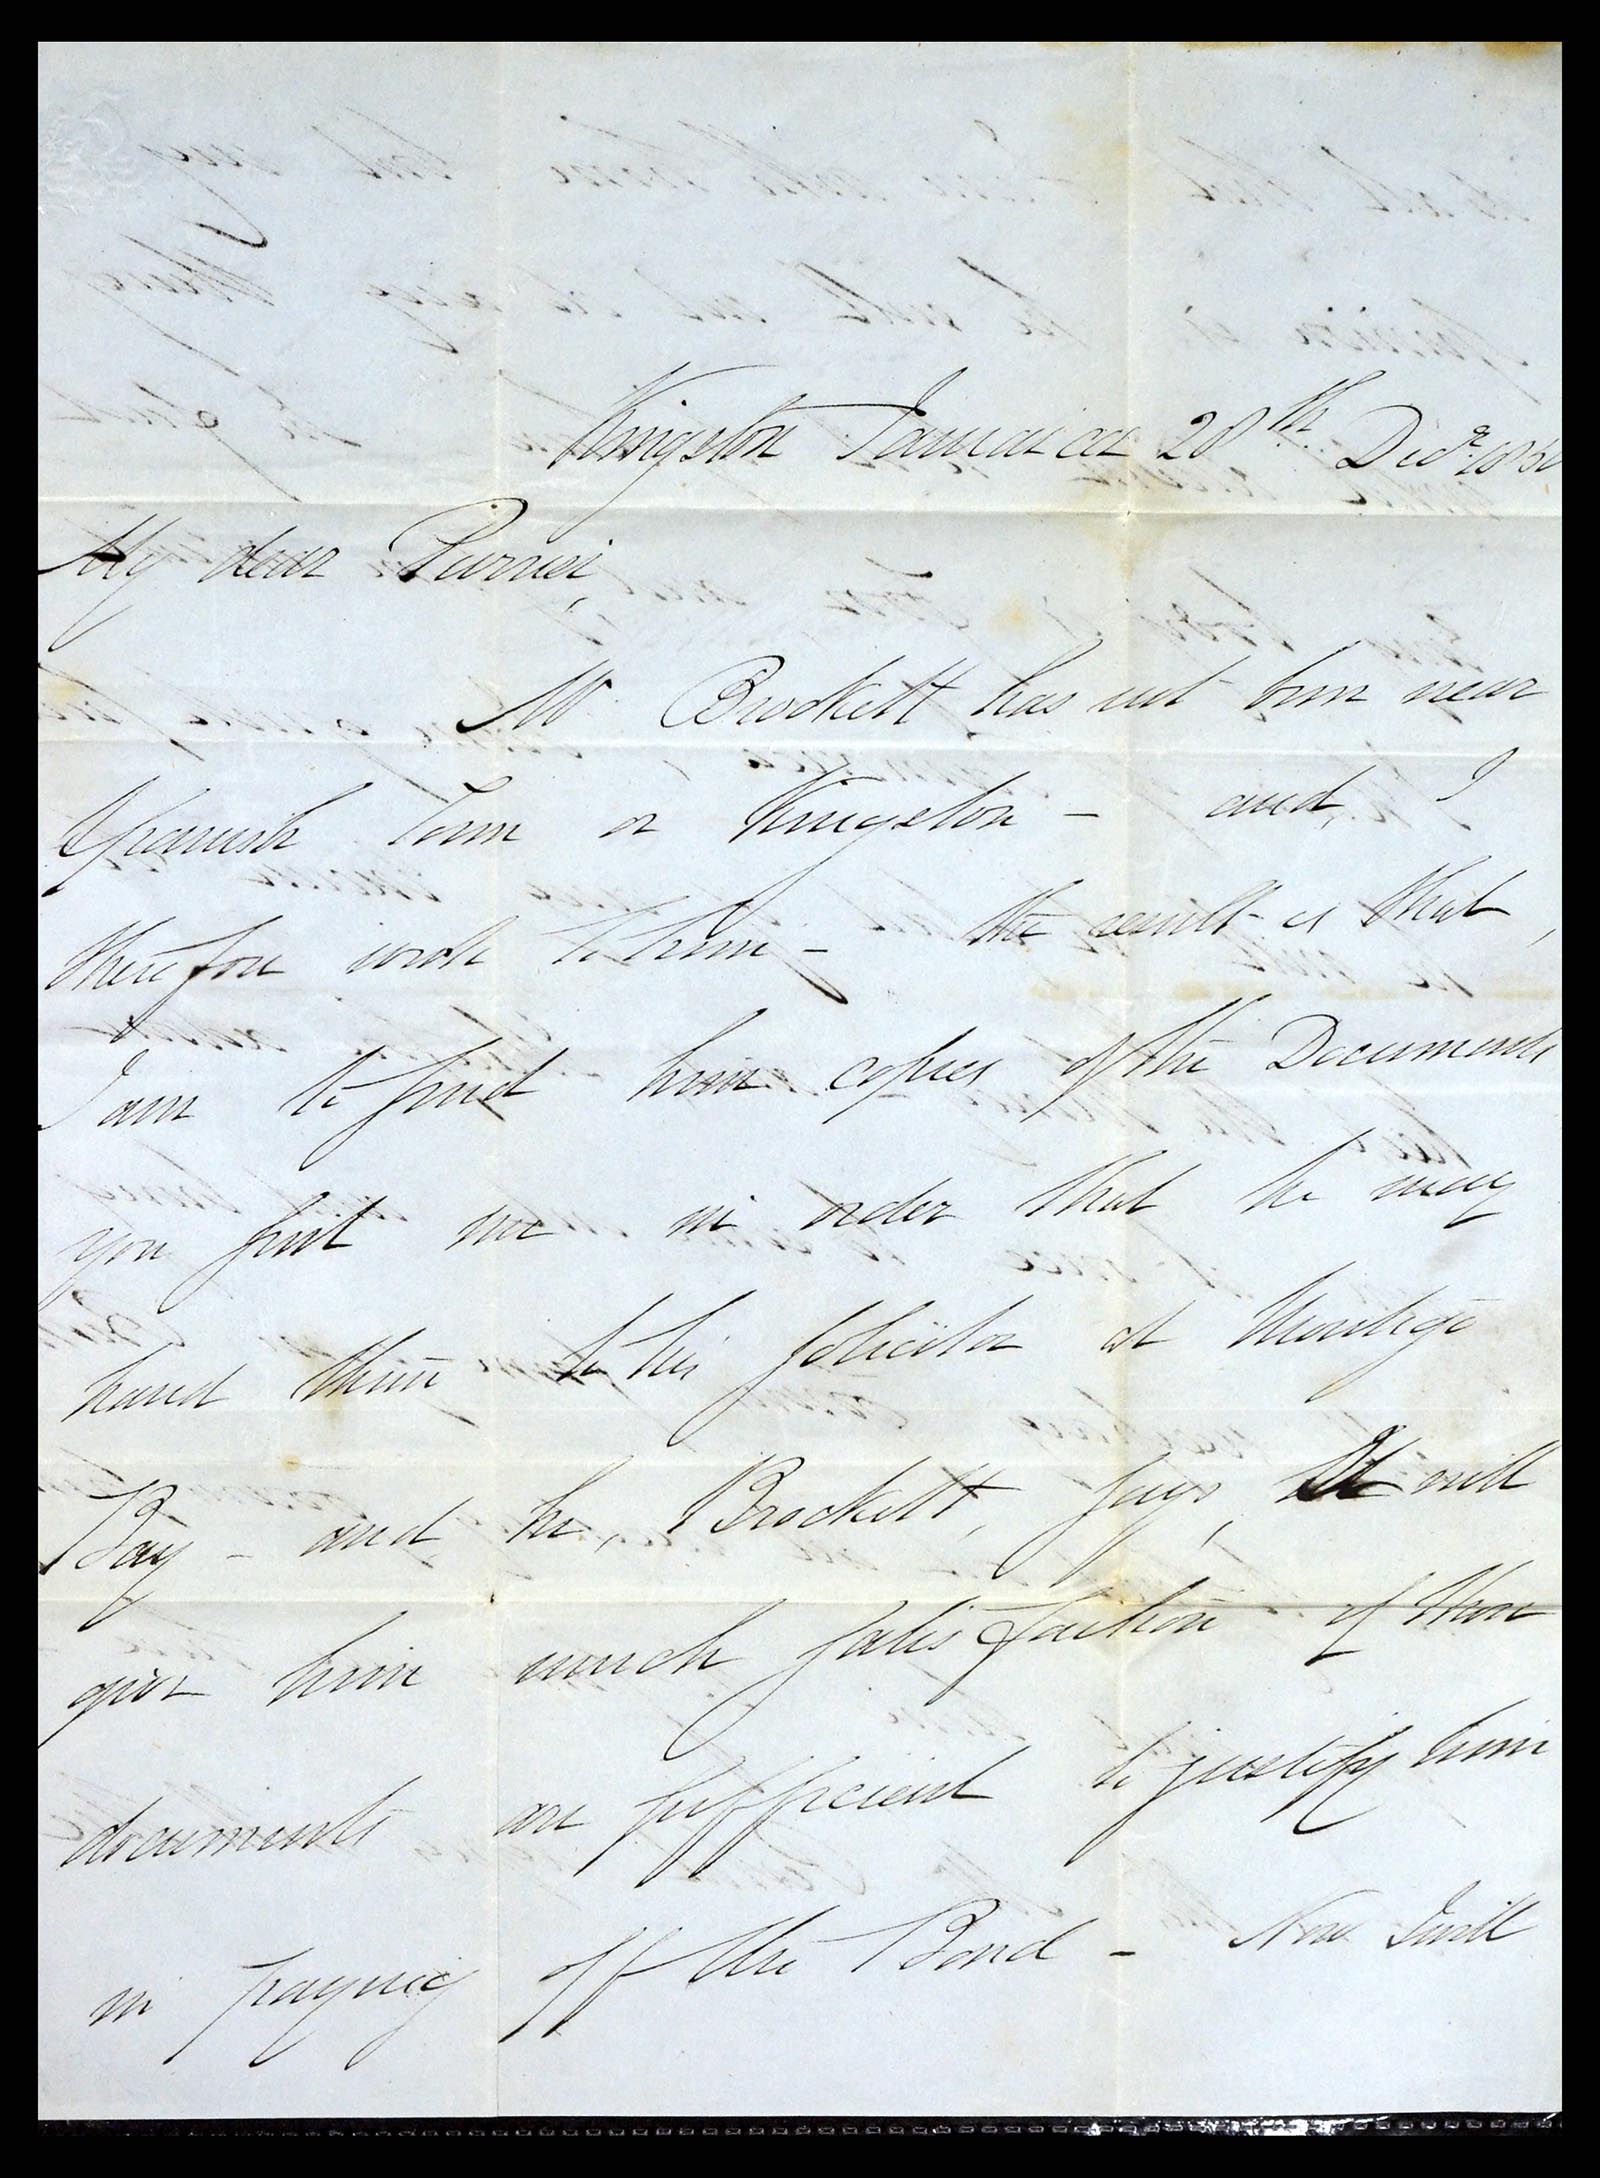 Kingston Jamaica 28th Decr
My dear Purrier,
Mr Brockett has not been near
Spanish Town or Kingston – and, I
therefore wrote to him – the result is that,
I am to send him copies of the Documents
you sent me in order that he may
hand them to his solicitor at Montego
Bay – and he, Brockett, says, it will
give him much satisfaction if those
documents are sufficient to justify him
in paying off the Bond – Now I will